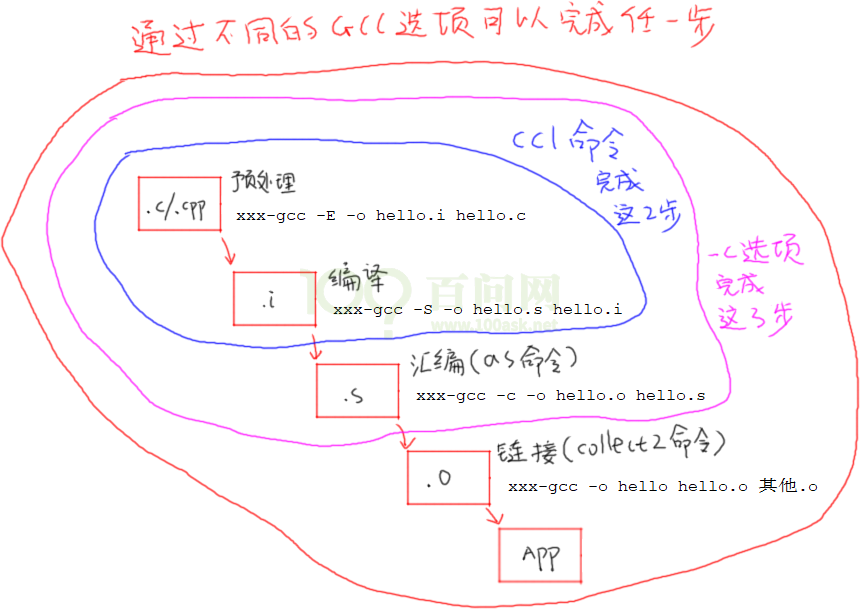 通过不同的GCC选项可以完成任一步
cc1命令
完成
这2步
预处理
.c/.cpp
xxx-gcc -E -o hello.i hello.c
-c选项
完成
这3步
编译
.i
xxx-gcc -S -o hello.s hello.i
100 百问网
www.100ask.net
汇编(as命令)
.s
xxx-gcc -c -o hello.o hello.s
链接(collect2命令)
.o
xxx-gcc -o hello hello.o 其他.o
App